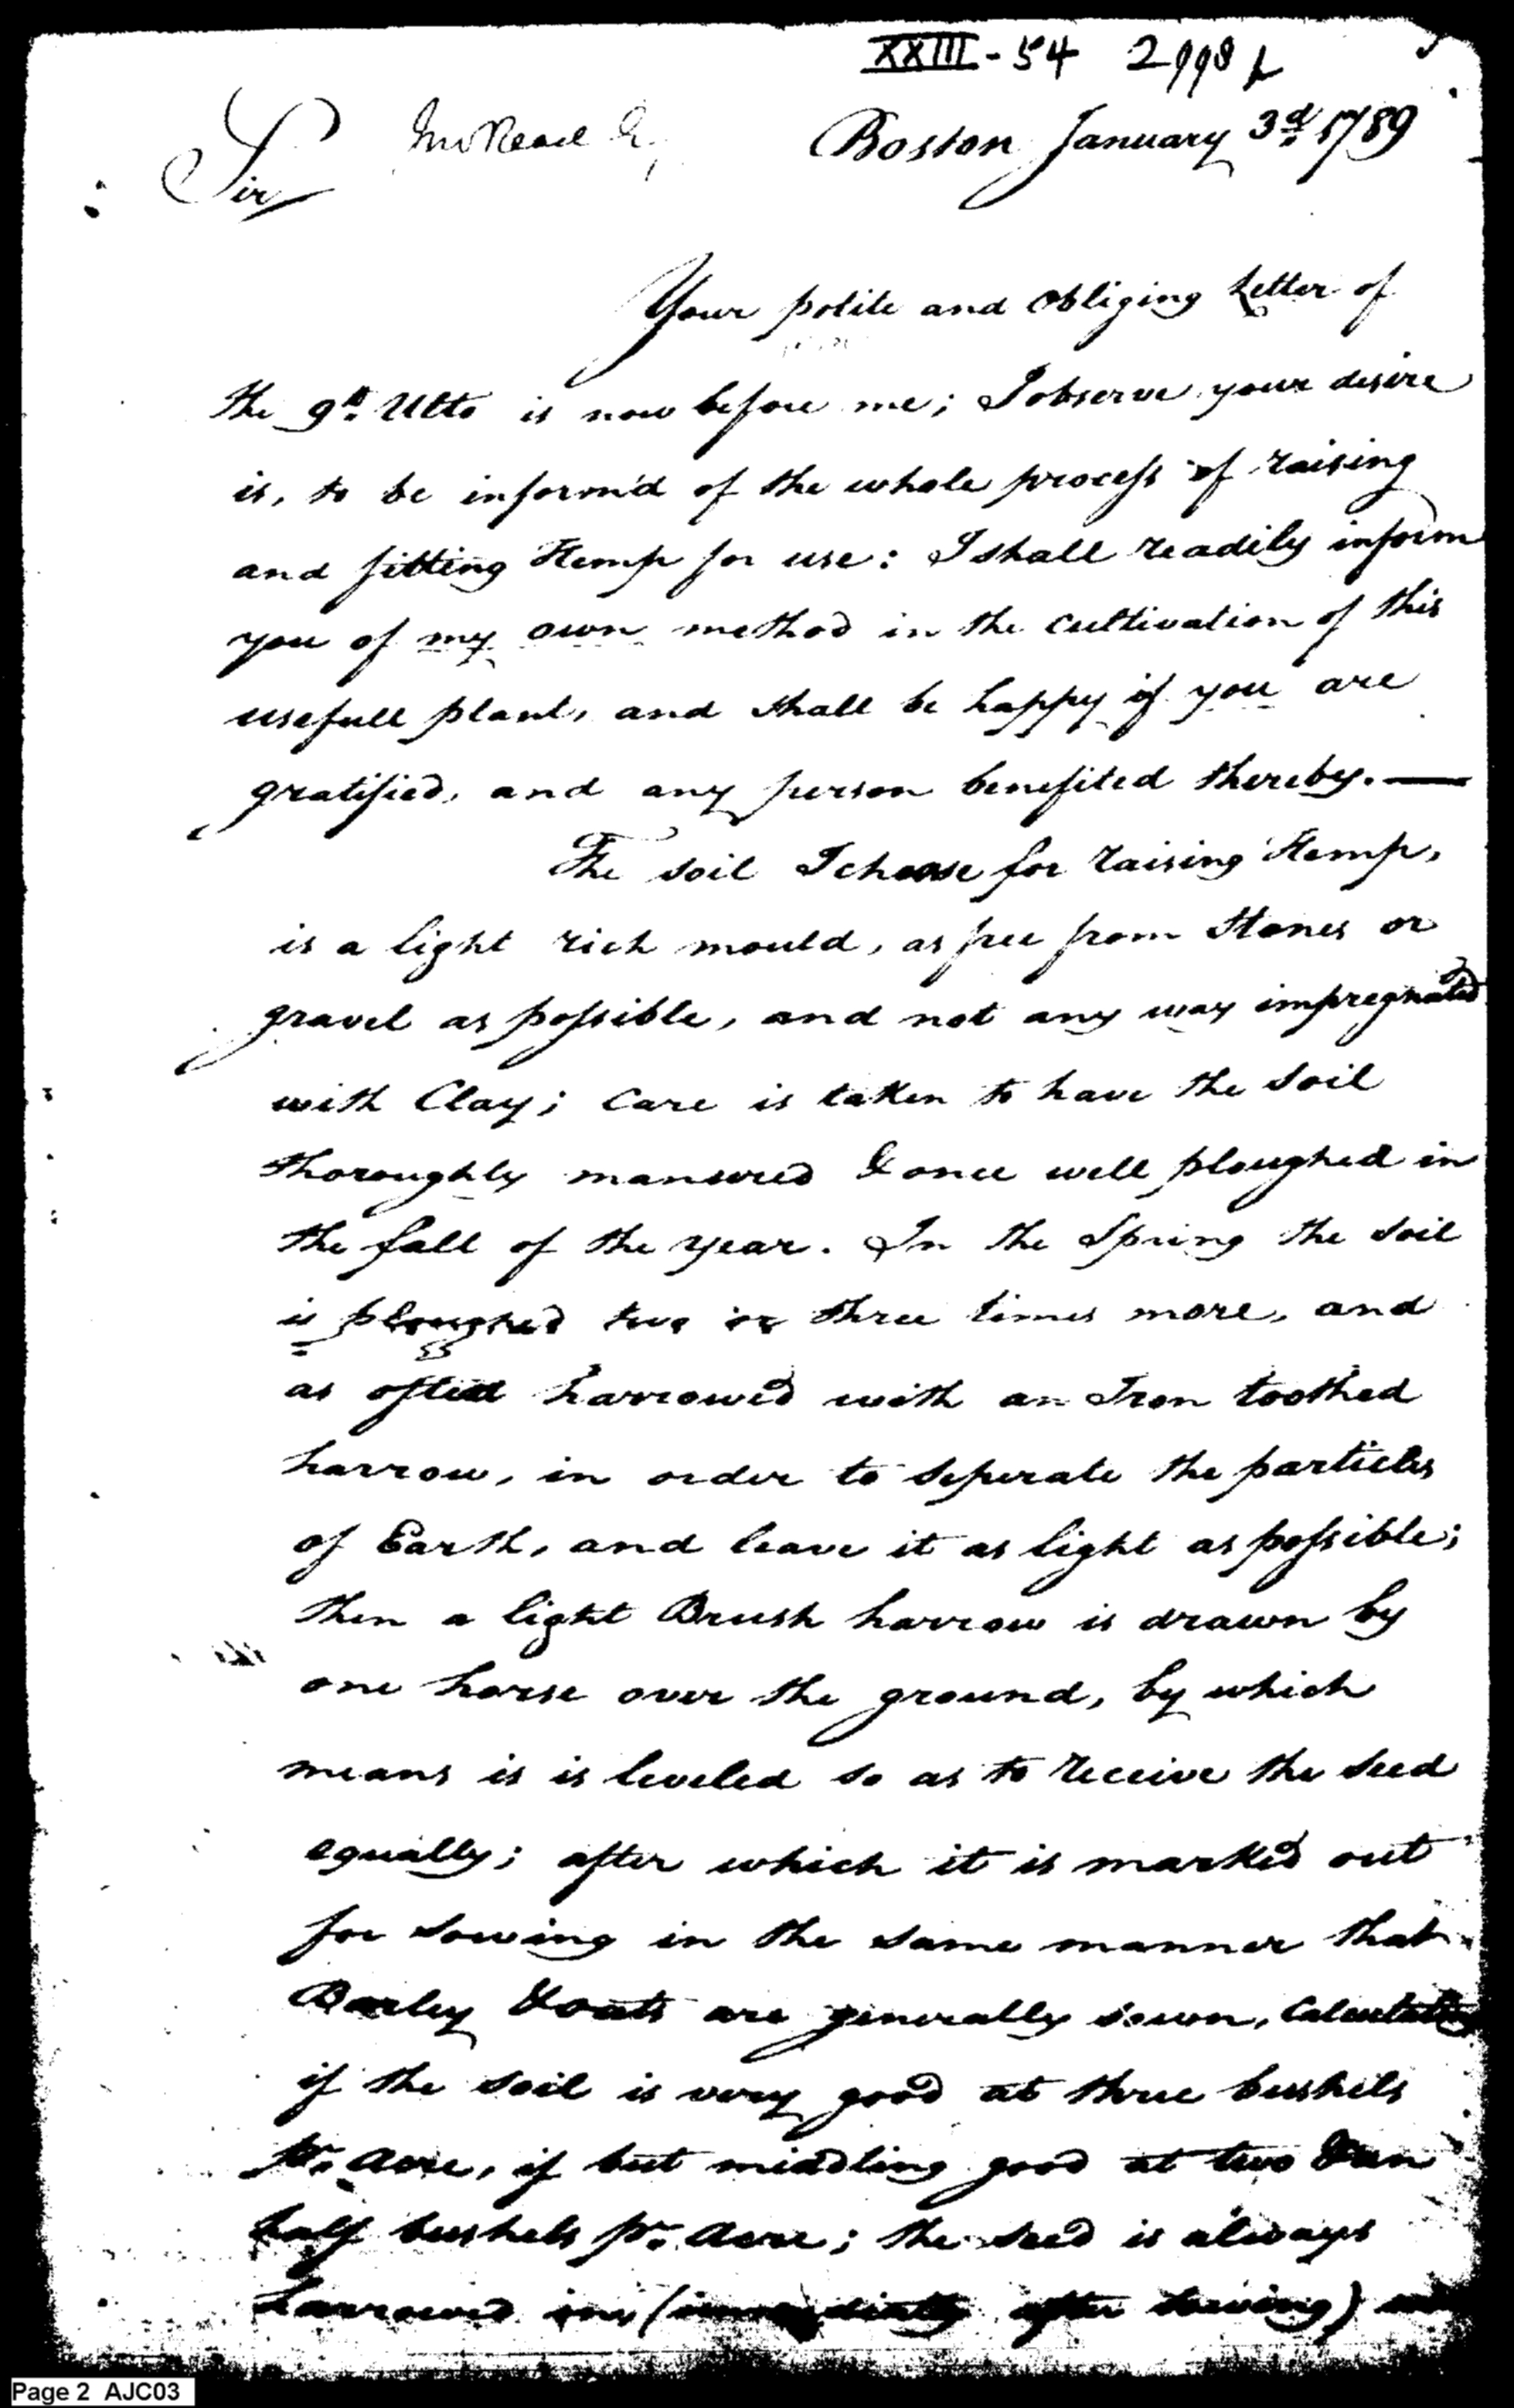 XXIII - 54 2998
Sir Boston January 3d 1789
Your polite and obliging Letter of
the 9th Ulto is now before me; I observe your desire
is, to be inform'd of the whole process of raising
and fitting Hemp for use: I shall readily inform
you of my own method in the cultivation of this
usefull plant, and shall be happy if you are
gratified, and any person benefited thereby. —
The soil I choose for raising Hemp,
is a light rich mould, as free from Stones or
gravel as possible, and not any way impregnated
with Clay; Care is taken to have the Soil
thoroughly manured & once well ploughed in
the fall of the year. In the Spring the Soil
is ploughed two or three times more, and
as often harrowed with an Iron toothed
harrow, in order to seperate the particles
of Earth, and leave it as light as possible;
then a light Brush harrow is drawn by
one horse over the ground, by which
means is is leveled so as to receive the seed
equally; after which it is marked out
for sowing in the same manner that
Barley & oats are generally sown, Calculating
if the soil is very good at three bushels
pr. Acre, if but middling good at two & an
half bushels pr. Acre; the seed is always
harrowed in, (immediately after sowing)
Page 2 AJC03